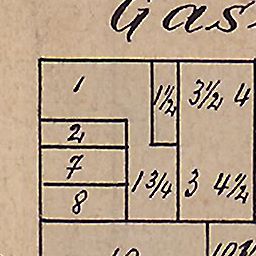 Gas
1 1½ 3½ 4
2
7 1¾ 3 4½
8
10